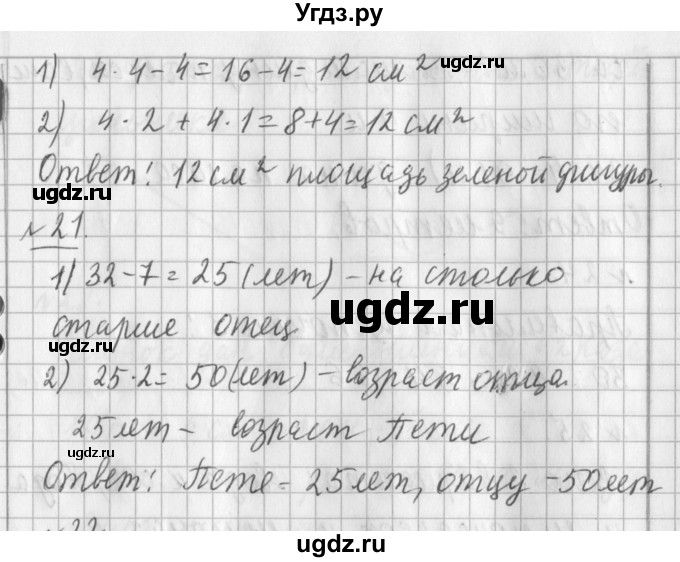 Угдз.ру
1) 4·4-4=16-4=12 см²
2) 4·2+4·1=8+4=12 см²
Ответ: 12 см² площадь зеленой фигуры.
№21.
1) 32-7=25 (лет) - на столько
старше отец
2) 25·2=50 (лет) - возраст отца.
25 лет - возраст Пети
Ответ: Пете - 25 лет, отцу - 50 лет
№22
ugdz.ru
ugdz.ru
ugdz.ru
ugdz.ru
ugdz.ru
ugdz.ru
ugdz.ru